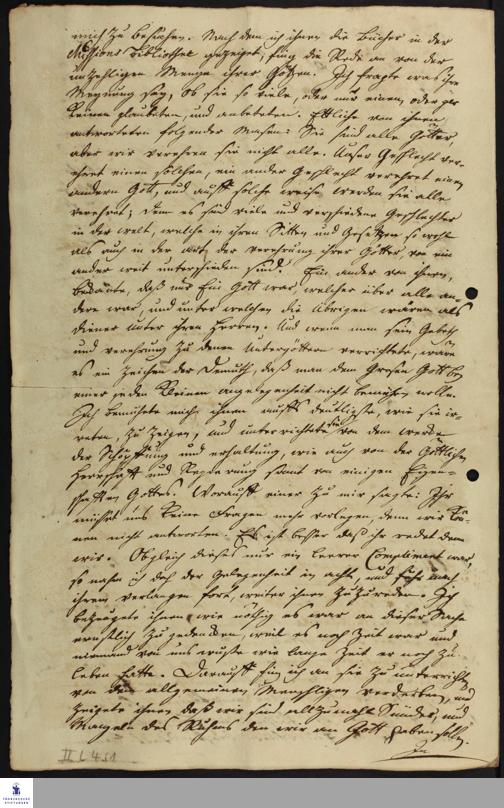 mich zu besuchen. Nach dem ich ihnen die Bücher in der
Missions Bibliothec gezeiget, fing die Rede an von der
unzehligen Menge ihrer Götzen. Ich fragte was ihre
Meynung sey, Ob sie so viele, oder nur einen, oder gar
keinen glaubeten, und anbeteten. Etliche von ihnen
antworteten folgender Masen: Sie sind alle Götter,
aber wir verehren sie nicht alle. Unser Geschlecht ver-
ehret einen solchen, ein ander Geschlecht verehret einen
andern Gott, und auf solche weise werden sie alle
verehret; denn es sind viele und verschiedene Geschlechter
in der Welt, welche in ihren Sitten und Gesetzen so wohl
als auch in der art der verehrung ihrer Götter, von ein
ander weit unterschieden sind. Ein ander von ihnen,
bekante, daß nur Ein Gott war, welcher über alle an-
dere war, und unter welchen die übrigen waren als
diener unter ihren Herren. Und wenn man sein Gebeth
und verehrung zu denen Untergöttern verrichtete, wäre
es ein Zeichen der Demuth, daß man dem Grosen Gott bey
einer jeden kleinen angelegenheit nicht bemühen wolle.
Ich bemühete mich ihnen aufs deutligste, wie sie ir-
reten, zu zeigen, und unterrichtete sie von dem
der Schöpfung und erhaltung, wie auch von der Göttlichen
Herrschaft und Regierung samt von einigen Eigen-
schaften Gottes. Worauf einer zu mir sagte: Ihr
müsset uns keine Fragen mehr vorlegen, denn wir kön-
nen nicht antworten. Es ist besser daß ihr redet denn
wir. Obgleich dieses nur ein leerer Compliment war,
so nahm ich doch der Gelegenheit in acht, und fuhr nach
ihrem verlangen fort, weiter ihnen zuzureden. Ich
bezeugete ihnen wie nöthig es war an dieser Sache
ernstlich zu gedencken, weil es noch Zeit war und
niemand von uns wuste wie lange Zeit er noch zu
leben hatte. Darauf fing ich an sie zu unterrichten
von dem allgemeinen Menschligen verderben, und
zeigete ihnen daß wir sind allzumahl Sünder, und
Mangeln des Ruhms den wir an Gott haben sollen.
II L 4
FRANCKESCHE
STIFTUNGEN